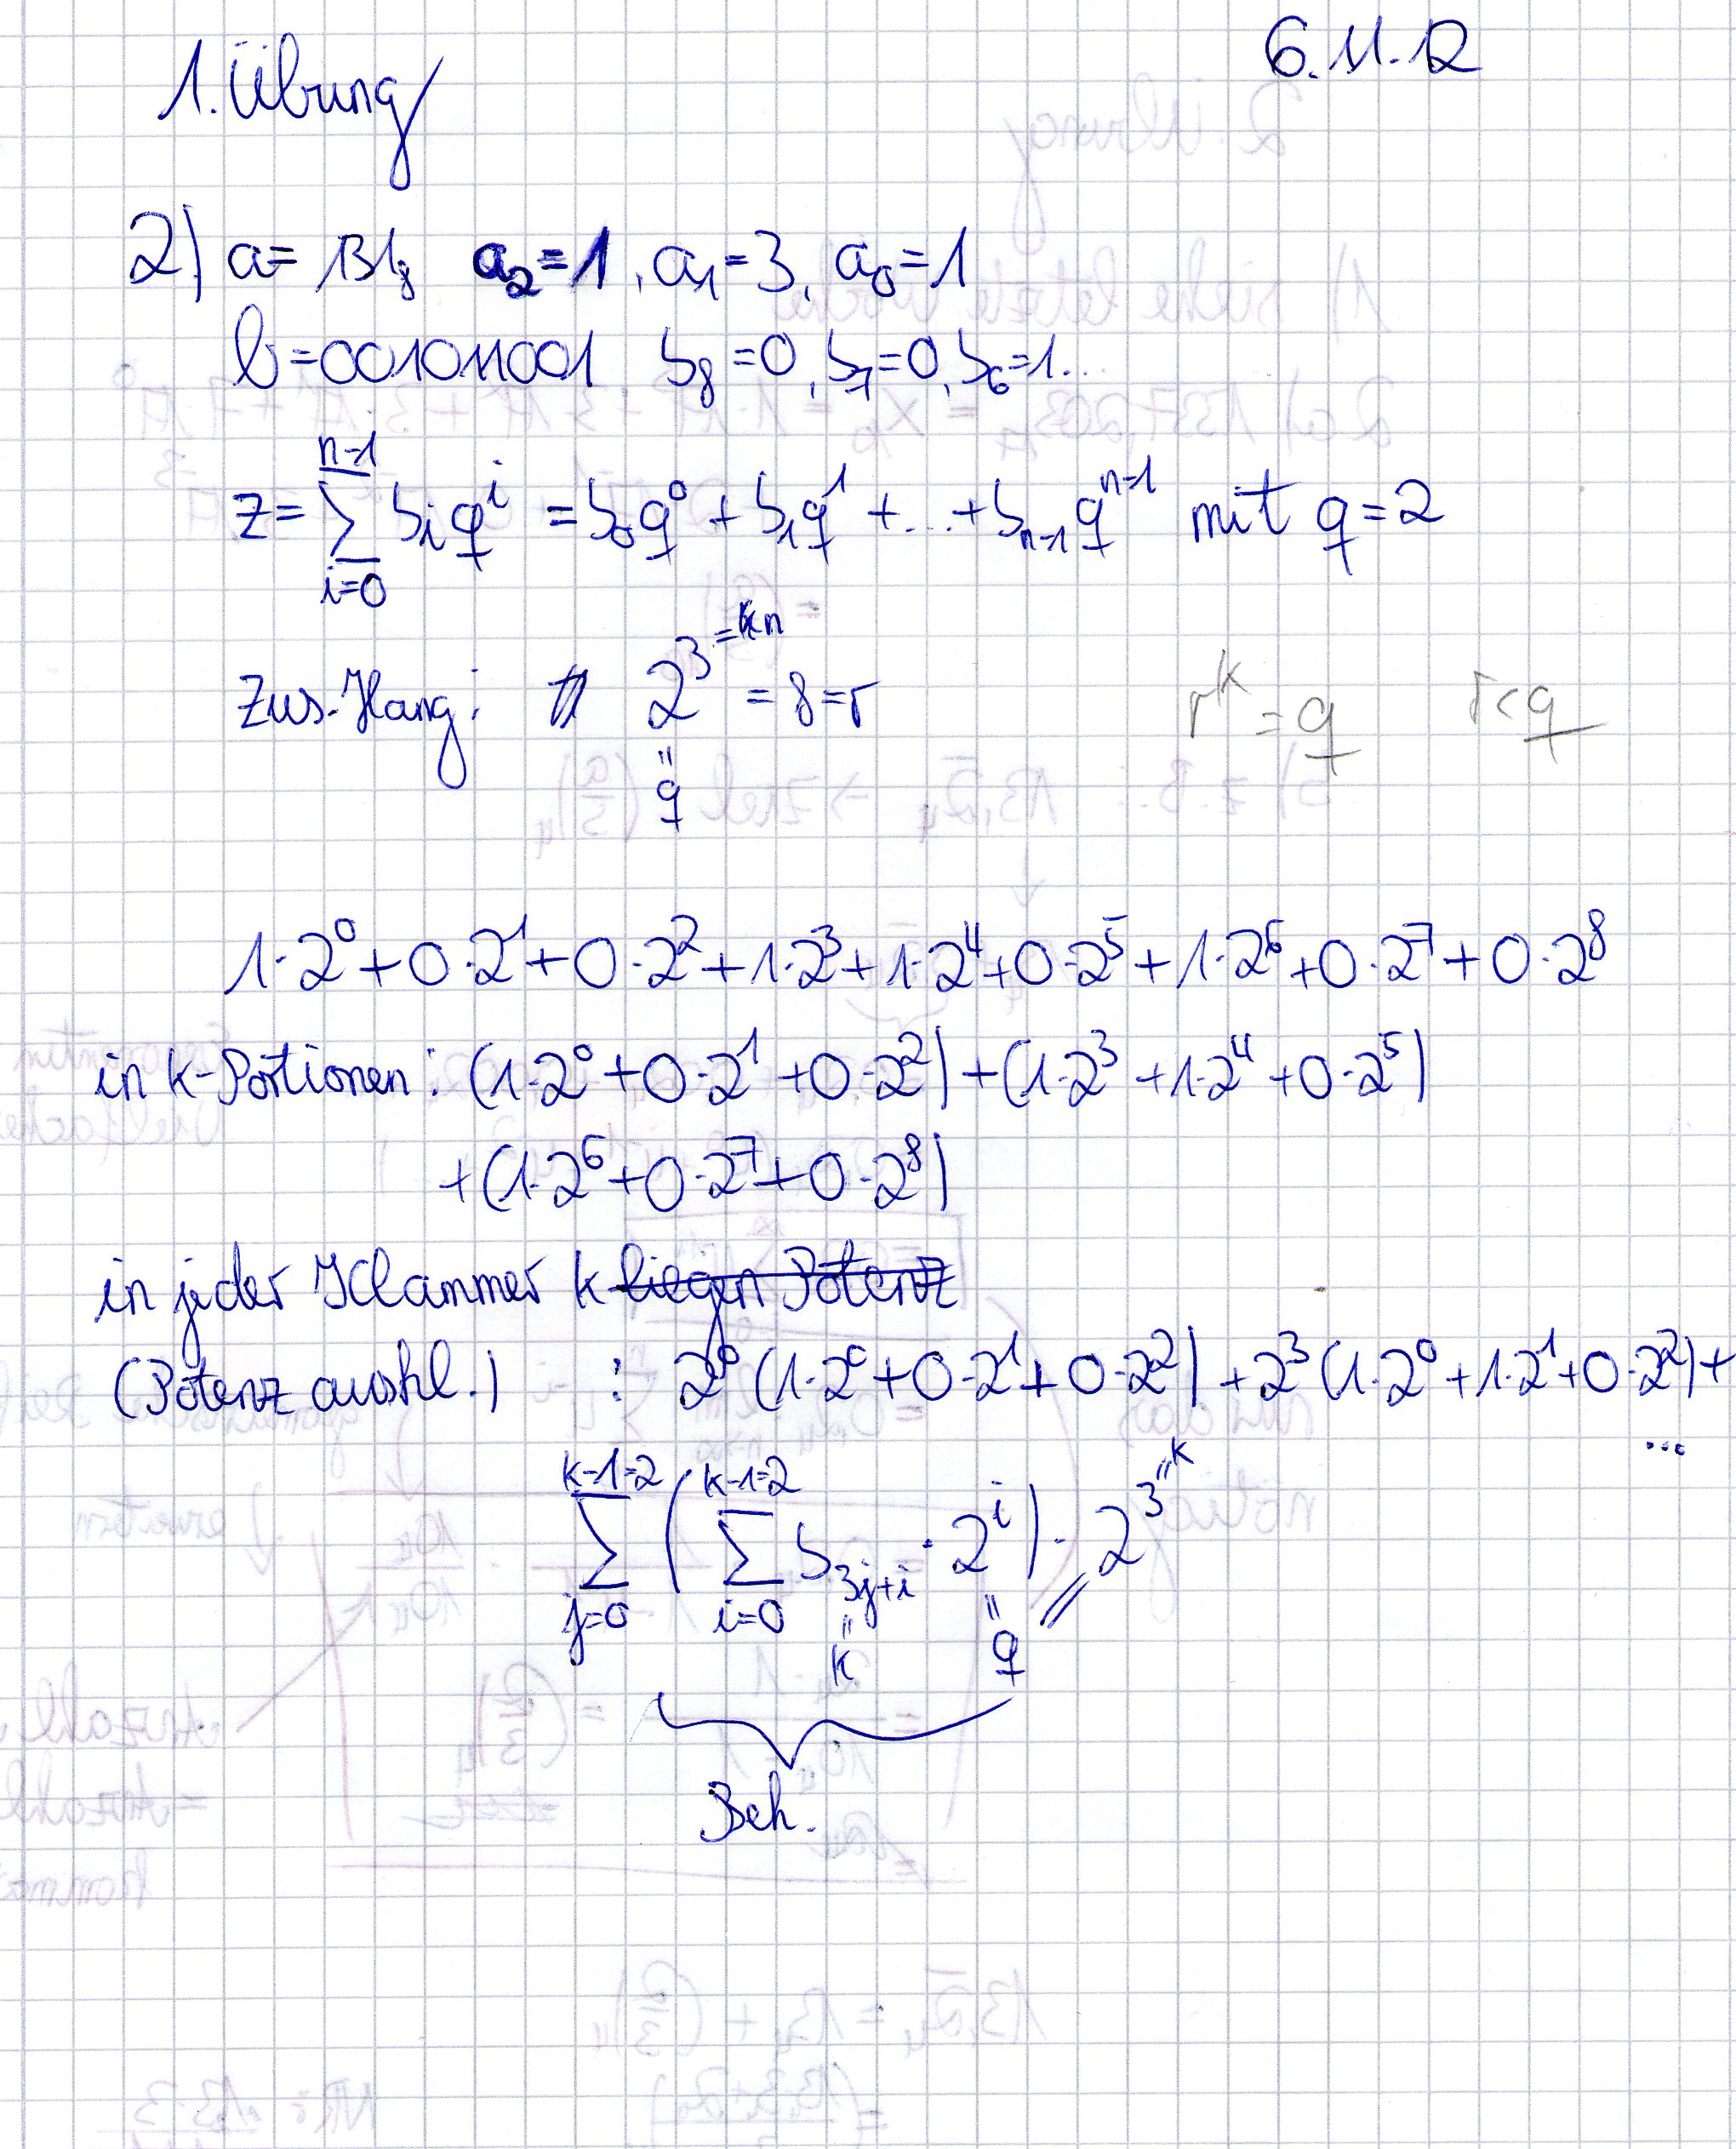 6.11.12
1. Übung
2) a = 131₈ a₂=1, a₁=3, a₀=1
b=001011001 b₈=0, b₇=0, b₆=1...
n-1
z= ∑ bᵢ qⁱ = b₀q⁰ + b₁q¹ +...+ bₙ₋₁qⁿ⁻¹ mit q=2
i=0
=k n
Zus.Hang: 2³ = 8 = r rᵏ = q r<q
"
q
1·2⁰+0·2¹+0·2²+1·2³+1·2⁴+0·2⁵+1·2⁶+0·2⁷+0·2⁸
in k-Portionen: (1·2⁰+0·2¹+0·2²)+(1·2³+1·2⁴+0·2⁵)
+(1·2⁶+0·2⁷+0·2⁸)
in jeder Klammer k liegen Potenz
(Potenz auskl.) : 2⁰(1·2⁰+0·2¹+0·2²)+2³(1·2⁰+1·2¹+0·2²)+
...
k-1=2 k-1=2 "k
∑ ( ∑ b₃ⱼ₊ᵢ · 2ⁱ) · 2³
j=0 i=0 " "
k q
Beh.